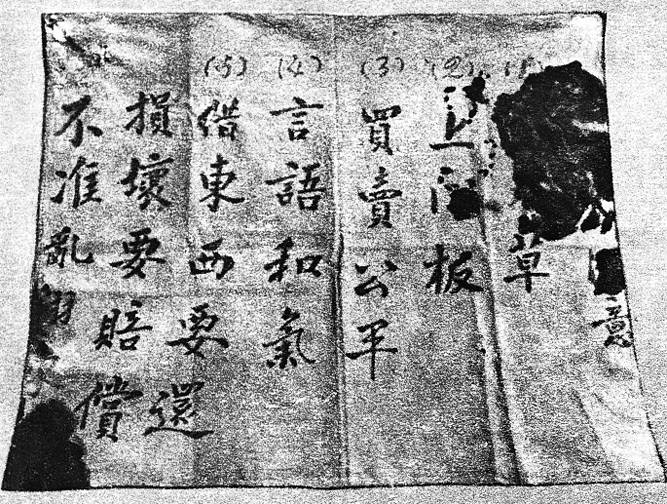 意
(1) 草
(2) 上門板
(3) 買賣公平
(4) 言語和氣
(5) 借東西要還
損壞要賠償
不准亂